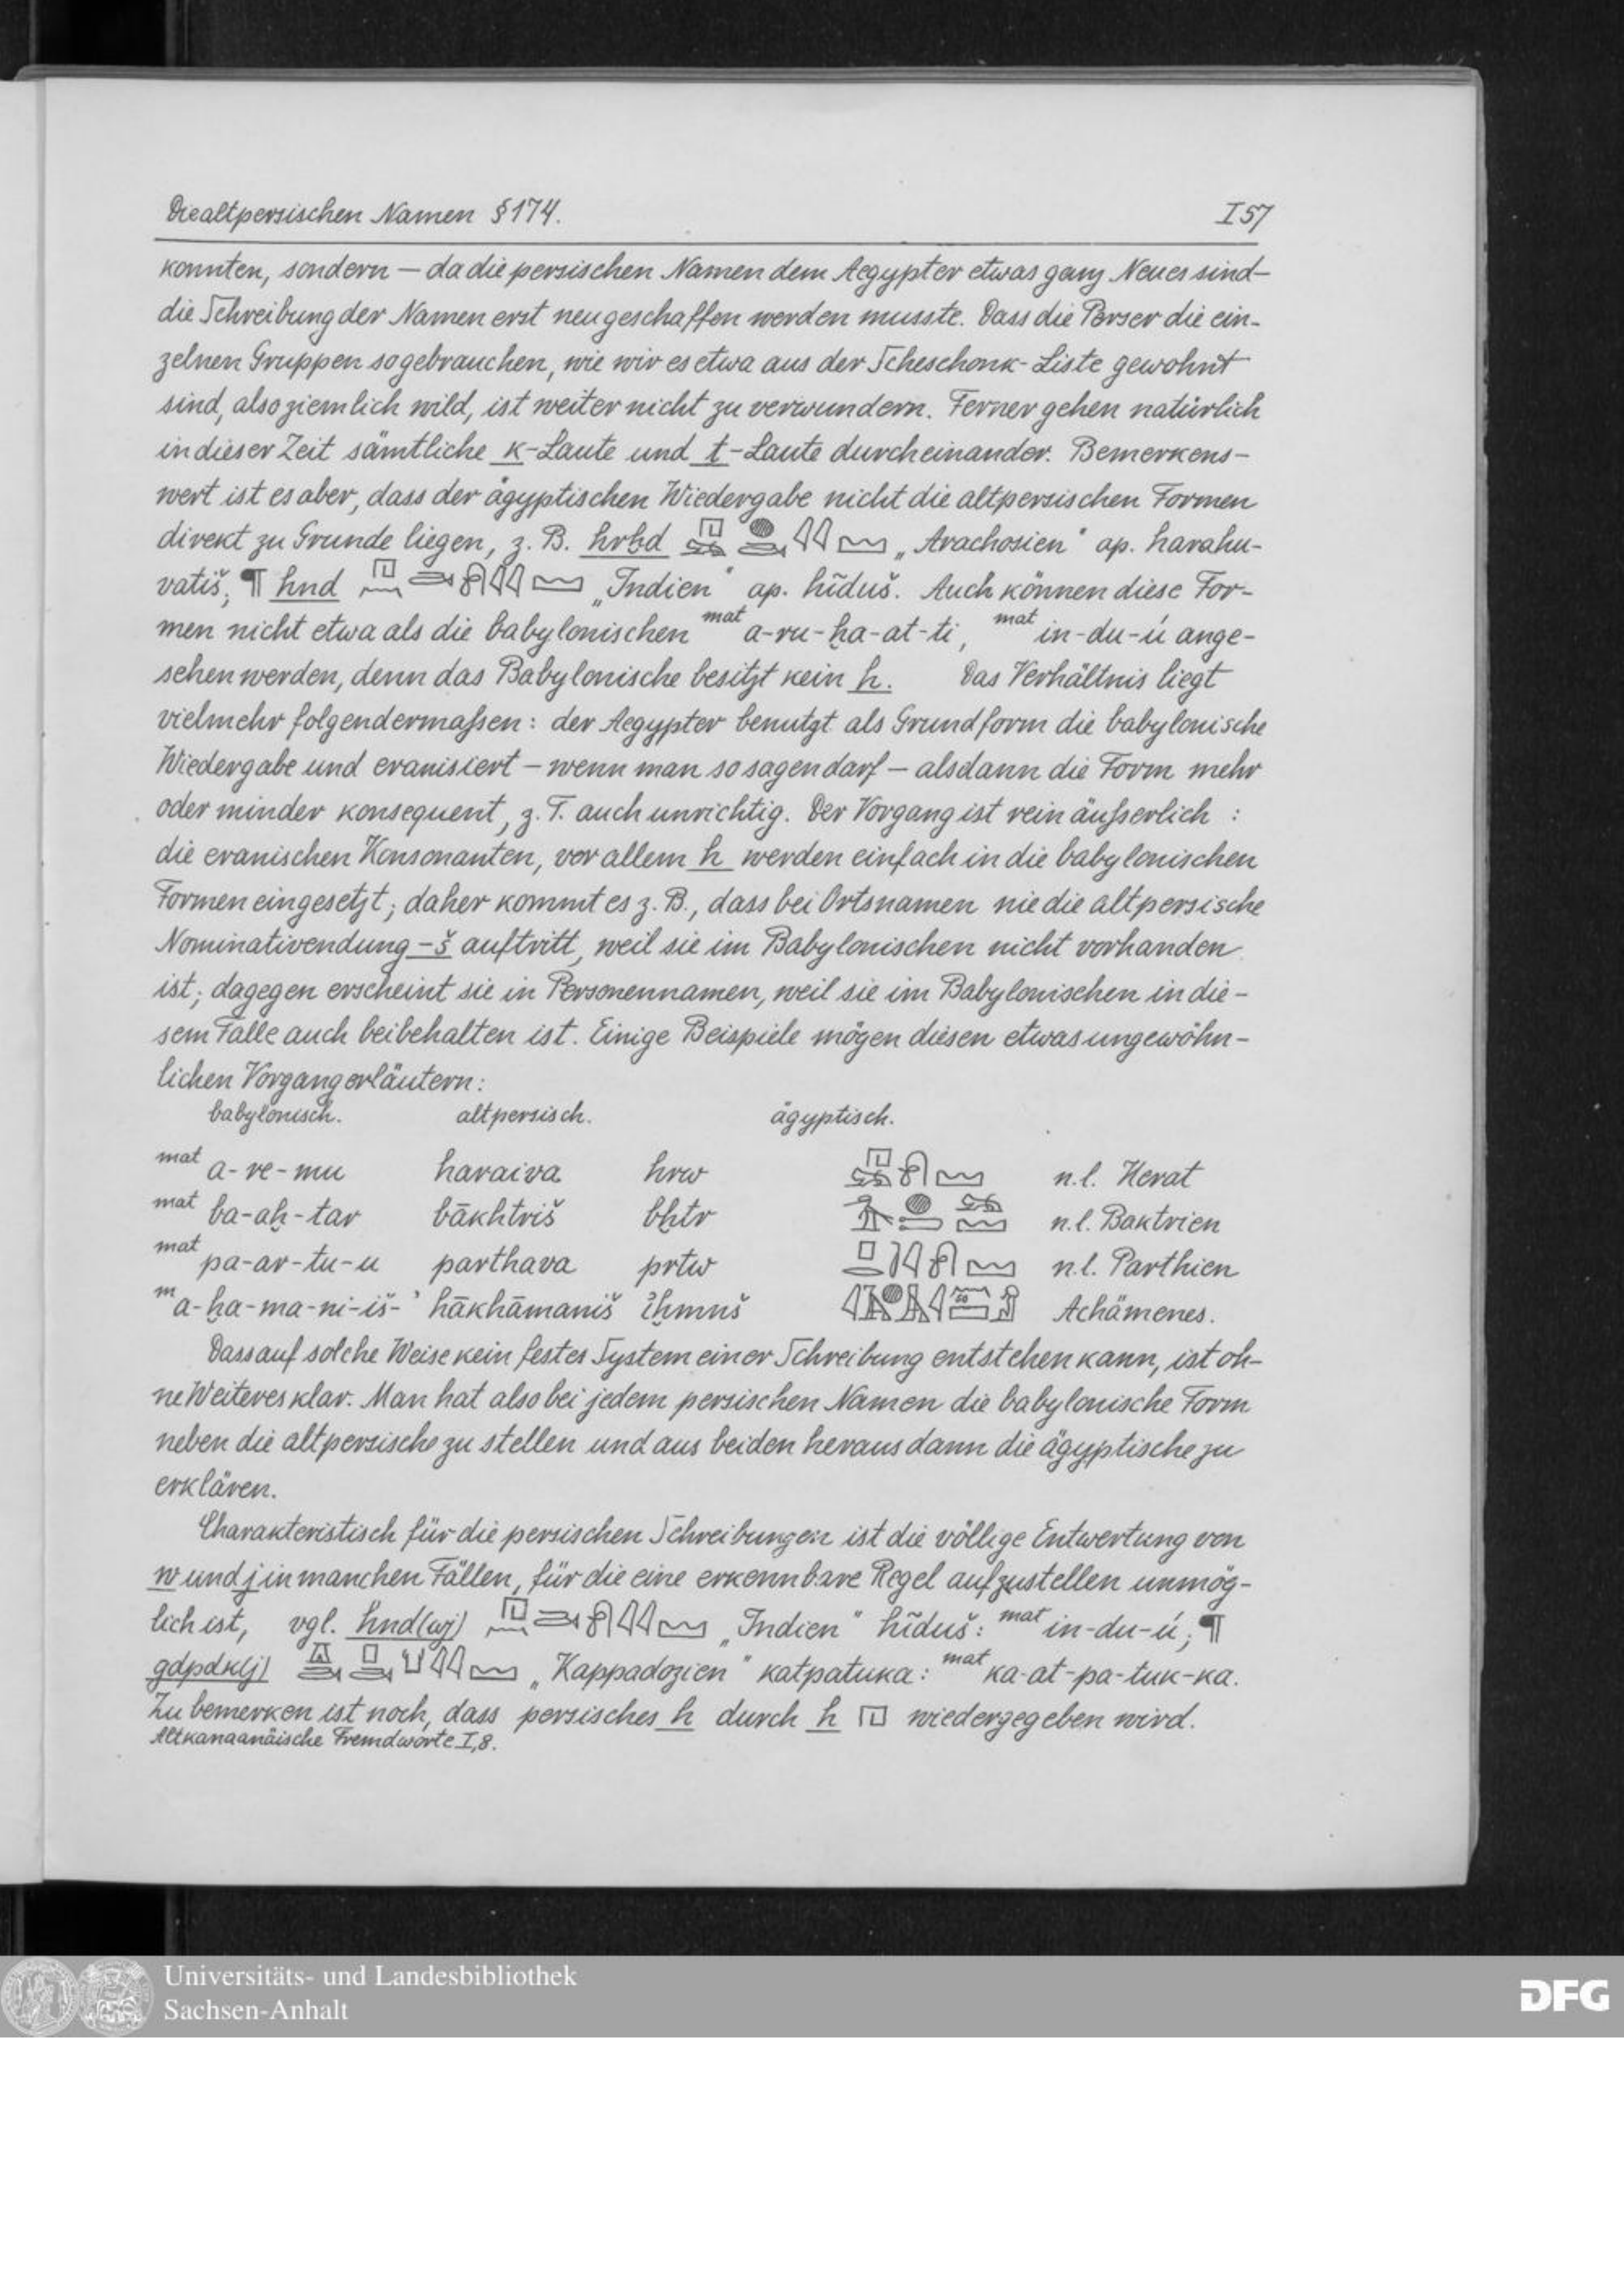 Die altpersischen Namen § 174. I 57
konnten, sondern — da die persischen Namen dem Aegypter etwas ganz Neues sind —
die Schreibung der Namen erst neu geschaffen werden musste. Dass die Perser die ein-
zelnen Gruppen so gebrauchen, wie wir es etwa aus der Scheschonk-Liste gewohnt
sind, also ziemlich wild, ist weiter nicht zu verwundern. Ferner gehen natürlich
in dieser Zeit sämtliche k-Laute und t-Laute durcheinander. Bemerkens-
wert ist es aber, dass der ägyptischen Wiedergabe nicht die altpersischen Formen
direkt zu Grunde liegen, z. B. hrḫd „Arachosien“ ap. harahu-
vatiš; ¶ hnd „Indien“ ap. hĩduš. Auch können diese For-
men nicht etwa als die babylonischen mat a-ru-ḫa-at-ti, mat in-du-ú ange-
sehen werden, denn das Babylonische besitzt kein h. Das Verhältnis liegt
vielmehr folgendermaßen: der Aegypter benutzt als Grundform die babylonische
Wiedergabe und eranisiert — wenn man so sagen darf — alsdann die Form mehr
oder minder konsequent, z. T. auch unrichtig. Der Vorgang ist rein äußerlich:
die eranischen Konsonanten, vor allem h werden einfach in die babylonischen
Formen eingesetzt; daher kommt es z. B., dass bei Ortsnamen nie die altpersische
Nominativendung -š auftritt, weil sie im Babylonischen nicht vorhanden
ist; dagegen erscheint sie in Personennamen, weil sie im Babylonischen in die-
sem Falle auch beibehalten ist. Einige Beispiele mögen diesen etwas ungewöhn-
lichen Vorgang erläutern:
babylonisch. altpersisch. ägyptisch.
mat a-re-mu haraiva hrw n.l. Herat
mat ba-aḫ-tar bākhtriš bḫtr n.l. Baktrien
mat pa-ar-tu-u parthava prtw n.l. Parthien
m a-ḫa-ma-ni-iš-ʾ hākhāmaniš ỉḫmnš Achämenes.
Dass auf solche Weise kein festes System einer Schreibung entstehen kann, ist oh-
ne Weiteres klar. Man hat also bei jedem persischen Namen die babylonische Form
neben die altpersische zu stellen und aus beiden heraus dann die ägyptische zu
erklären.
Charakteristisch für die persischen Schreibungen ist die völlige Entwertung von
w und j in manchen Fällen, für die eine erkennbare Regel aufzustellen unmög-
lich ist, vgl. hnd(wj) „Indien“ hĩduš: mat in-du-ú; ¶
gdpdk(j) „Kappadozien“ katpatuka: mat ka-at-pa-tuk-ka.
Zu bemerken ist noch, dass persisches h durch h wiedergegeben wird.
Altkanaanäische Fremdworte I, 8.
Universitäts- und Landesbibliothek
Sachsen-Anhalt
DFG